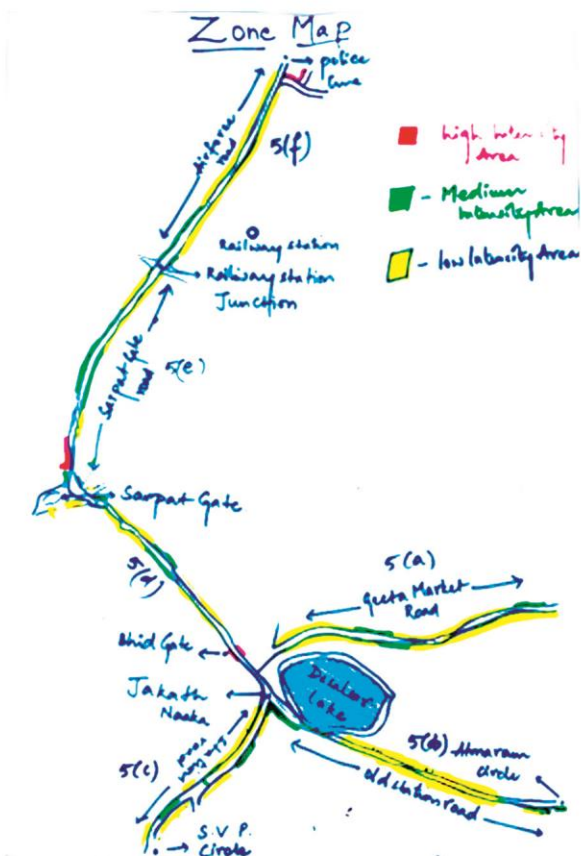 Zone Map
→ police
line
Airforce
road
5(f)
high Intencity
Area
- Medium
Intencity Area
- low Intencity Area
Railway station
→ Railway station
Junction
Sarpat Gate
road
5(e)
Sarpat Gate
5(d)
5(a)
Geeta Market
Road
Bhid Gate
Jakath
Naaka
Lake
5(b) Atmaram
Circle
old station road
road
5(c)
S.V.P.
Circle